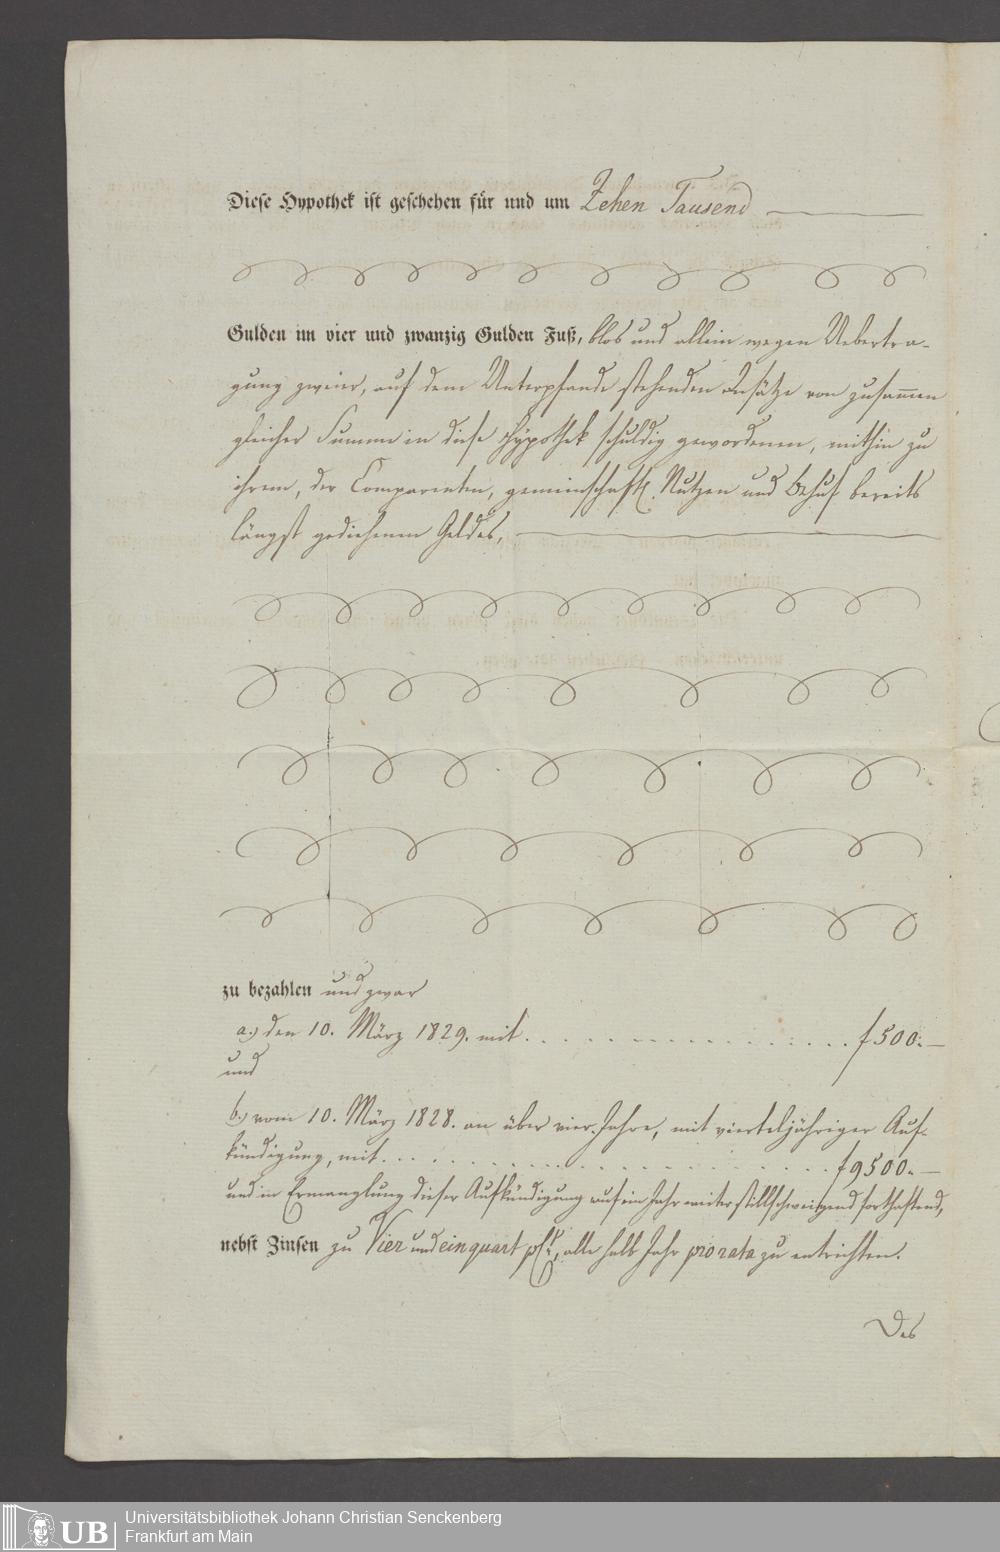 Diese Hypothek ist geschehen für und um Zehen Tausend
Gulden im vier und zwanzig Gulden Fuß, blos und allein wegen Uebertra-
gung zweier, auf dem Unterpfande stehenden Insätze von zusammen
gleicher Summe in diese Hypothek schuldig gewordenen, mithin zu
ihrem, der Comparenten, gemeinschaftl. Nutzen und Behuf bereits
längst gediehenen Geldes,
zu bezahlen und zwar
a.) den 10. März 1829. mit . . . . . . . . . . . . . . . . f 500.–
und
b.) vom 10. März 1828. an über vier Jahre, mit vierteljähriger Auf-
kündigung, mit . . . . . . . . . . . . . . . . f 9500.–
und in Ermanglung dieser Aufkündigung auf ein Jahr weiter stillschweigend forthaftend,
nebst Zinsen zu Vier und einquart pCt., alle halb Jahr pro rata zu entrichten.
Des
UB
Universitätsbibliothek Johann Christian Senckenberg
Frankfurt am Main